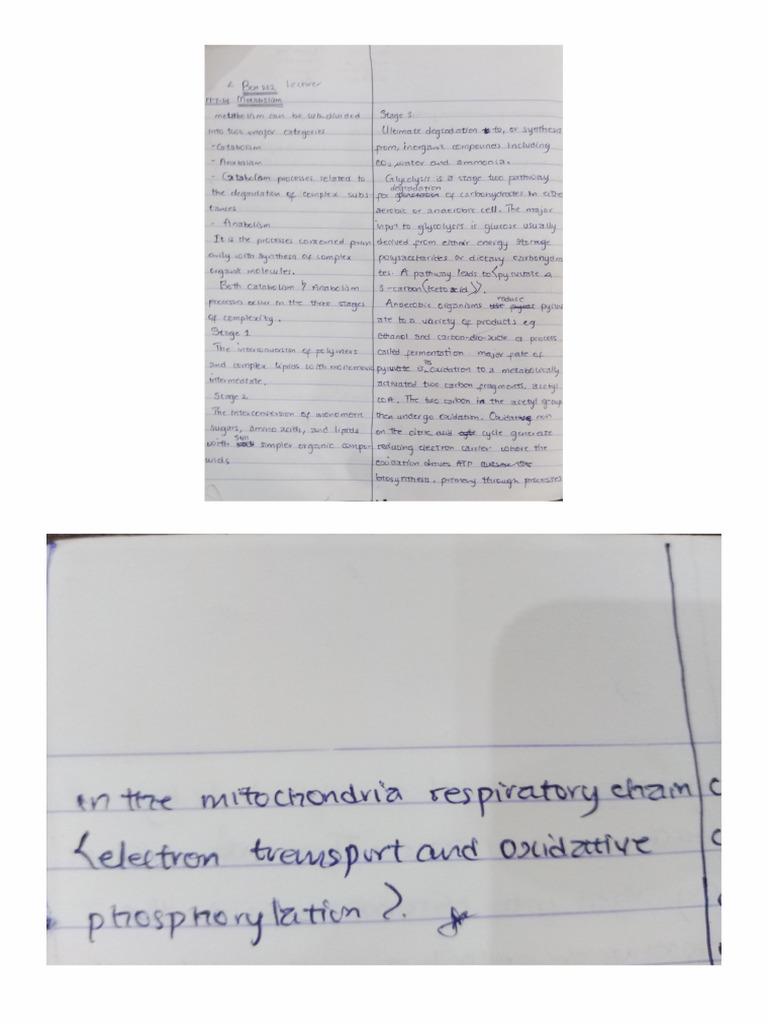 Lecture
Metabolism
metabolism can be subdivided
into two major categories
- Catabolism
- Anabolism
- Catabolism processes related to
the degradation of complex subs
tances
- Anabolism
It is the processes concerned prim
arily with synthesis of complex
organic molecules.
Both Catabolism & Anabolism
processes occur in the three stages
of complexity.
Stage 1
The interconversion of polymers
and complex lipids with monomeric
intermediate.
Stage 2
The Interconversion of monomeric
sugars, amino acids, and lipids
with still simpler organic compo
unds
Stage 3
Ultimate degradation to, or synthesis
from, inorganic compounds including
CO2, water and ammonia.
Glycolysis is a stage two pathway
for degradation of carbohydrates in either
aerobic or anaerobic cell. The major
input to glycolysis is glucose usually
derived from either energy storage
polysaccharides or dietary carbohydra
tes. A pathway leads to (pyruvate a
3-carbon (keto acid)).
Anaerobic organisms reduce pyruv
ate to a variety of products eg
ethanol and carbon-dioxide a process
called fermentation major fate of
pyruvate is oxidation to a metabolically
activated two carbon fragments, acetyl
COA. The two carbon in the acetyl group
then undergo oxidation.
on the citric acid cycle generate
reducing electron carrier where the
oxidation drives ATP
biosynthesis, primary through processes
in the mitochondria respiratory chain
(electron transport and oxidative
phosphorylation).